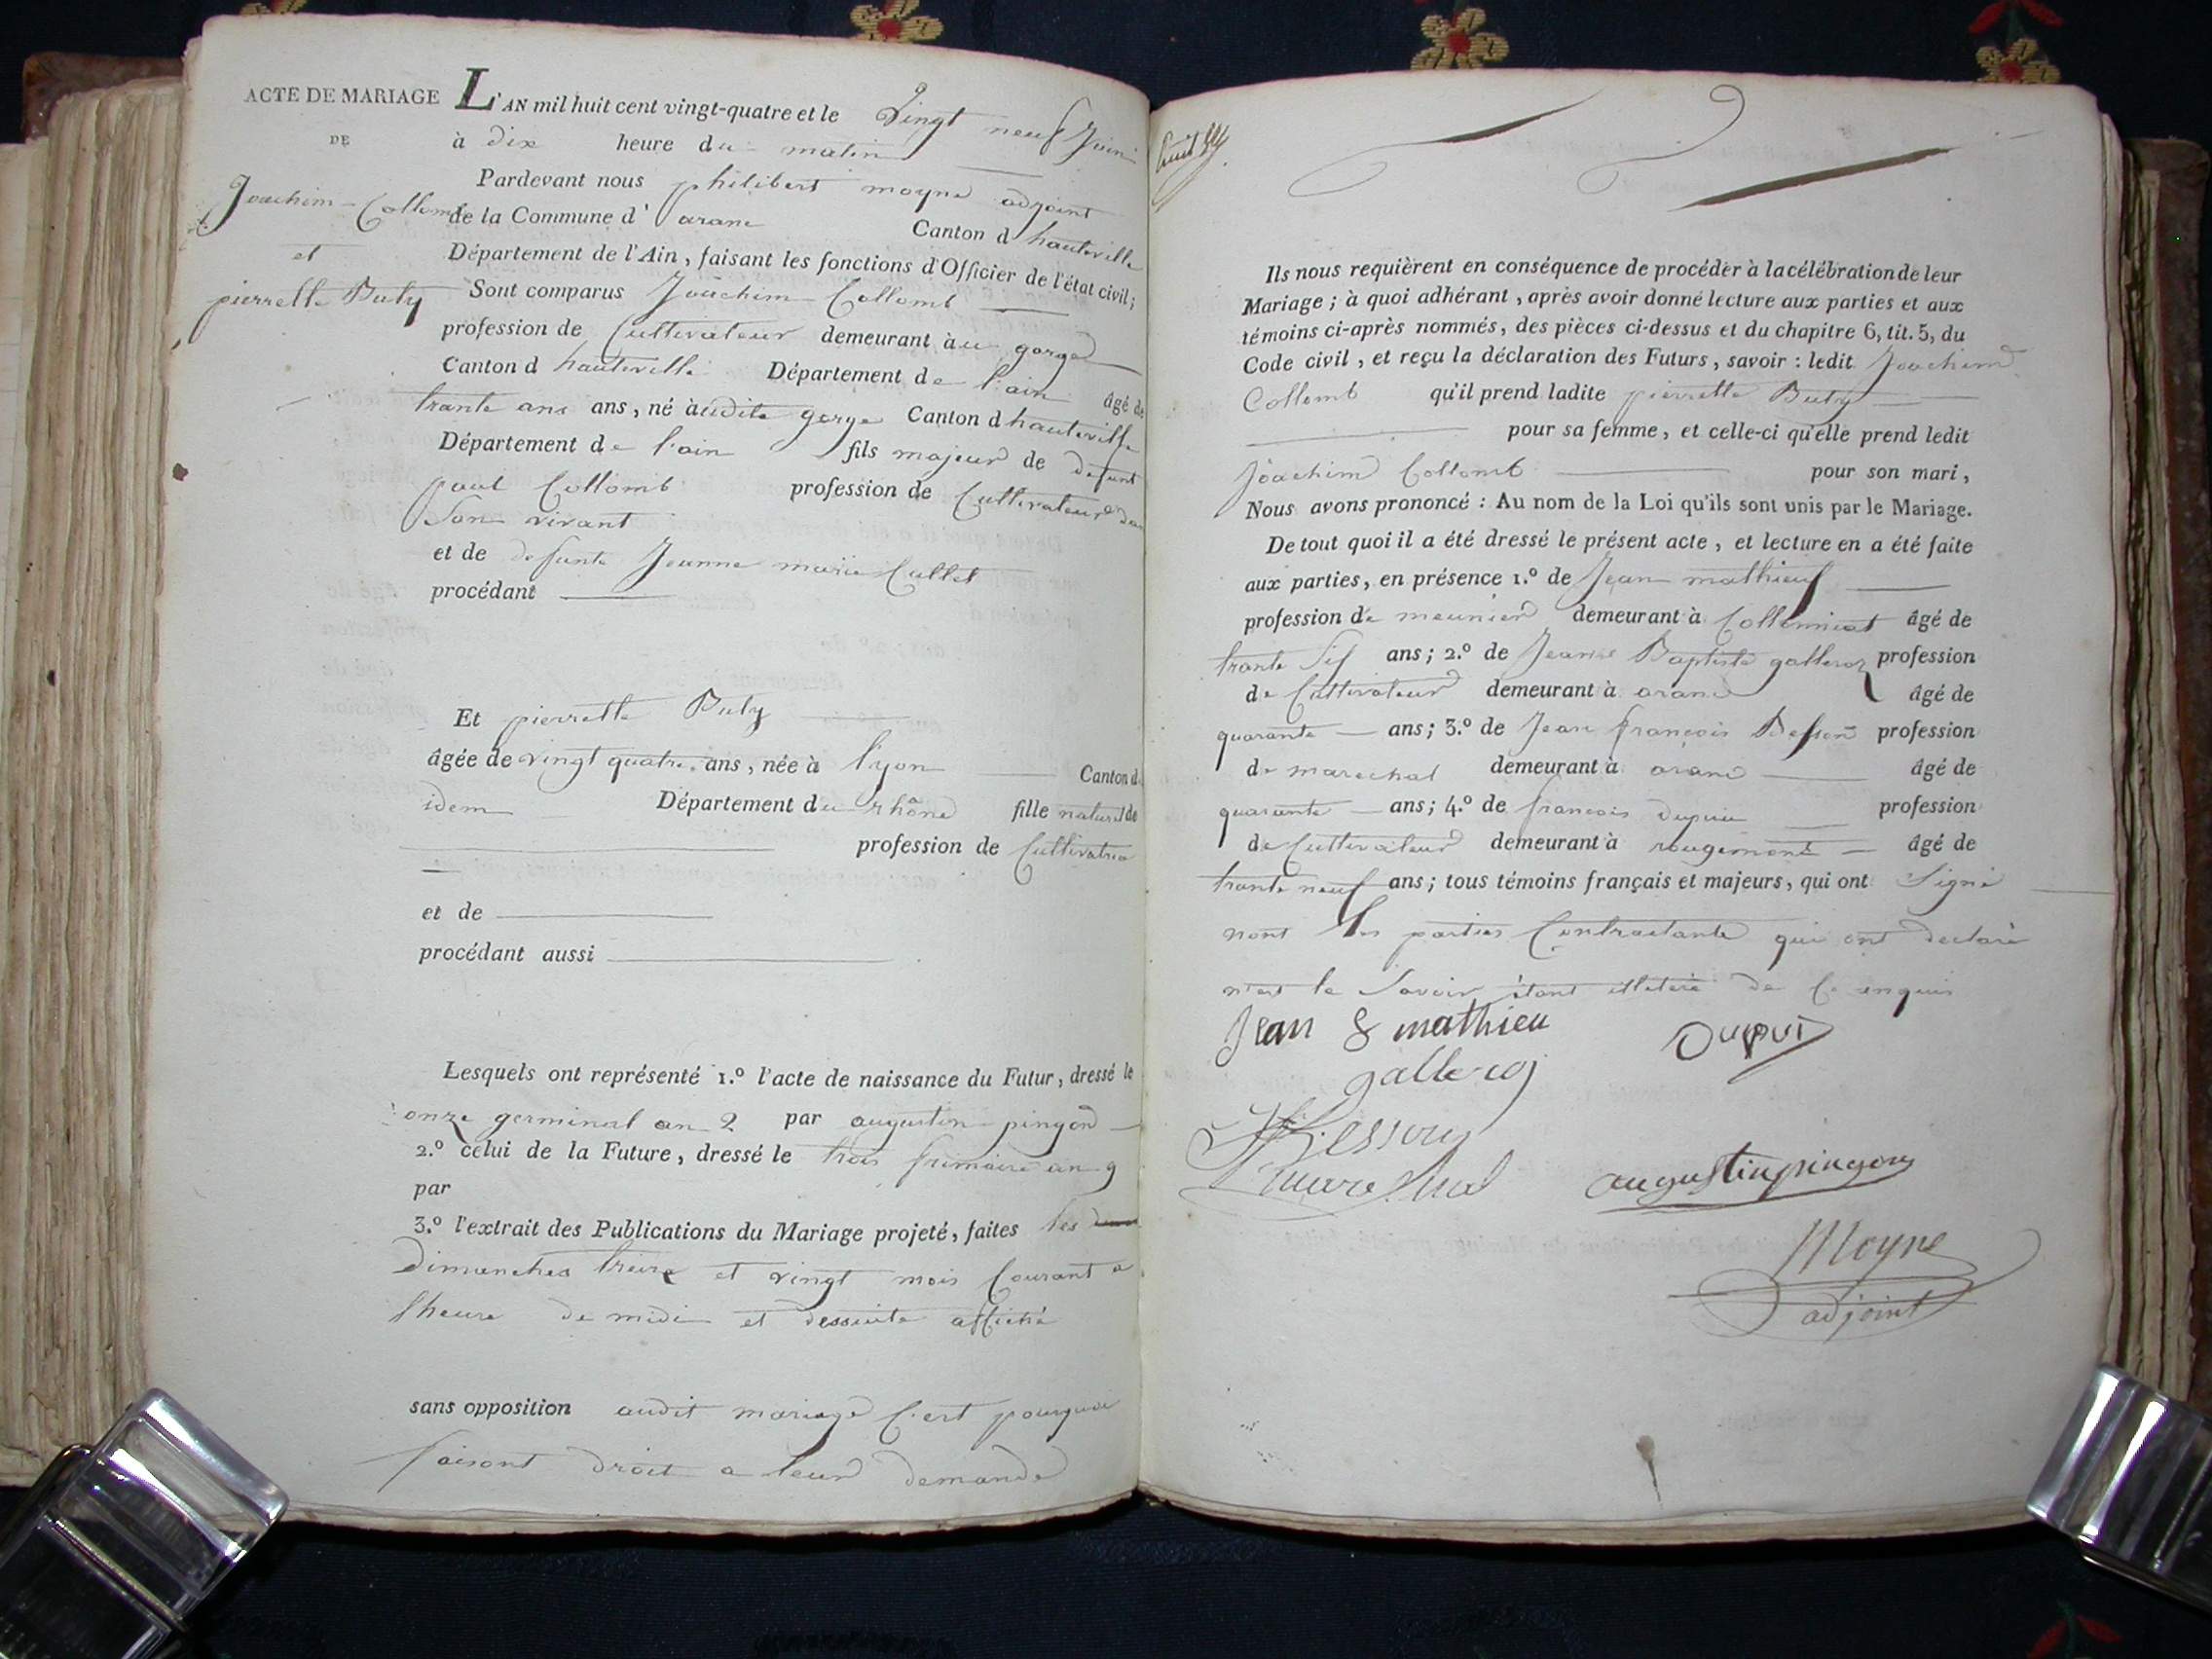 ACTE DE MARIAGE
DE
Joachim Collomb
et
pierrette Buty
L'AN mil huit cent vingt-quatre et le Vingt neuf Juin
à dix heure du matin
Pardevant nous philibert moyne adjoint
de la Commune d' aranc Canton d hauteville
Département de l'Ain, faisant les fonctions d'Officier de l'état civil;
Sont comparus Joachim Collomb
profession de Cultivateur demeurant àu gorge
Canton d hauteville Département de l'ain âgé de
trante ans ans, né àudite gorge Canton d hauteville
Département de l'ain fils majeur de defunt
paul Collomb profession de Cultivateur de
Son vivant
et de defunte Jeanne marie Cullet
procédant
Et pierrette Buty
âgée de vingt quatre ans, née à lyon Canton d
idem Département du rhône fille naturel de
profession de Cultivatrice
et de
procédant aussi
Lesquels ont représenté 1.º l'acte de naissance du Futur, dressé le
onze germinal an 2 par augustin pingon
2.º celui de la Future, dressé le trois frimaire an 9
par
3.º l'extrait des Publications du Mariage projeté, faites les
dimanches treize et vingt mois Courant a
lheure de midi et dessuite affiché
sans opposition audit mariage C'est pourquoi
faisant droit a leur demande
Ils nous requièrent en conséquence de procéder à la célébration de leur
Mariage; à quoi adhérant, après avoir donné lecture aux parties et aux
témoins ci-après nommés, des pièces ci-dessus et du chapitre 6, tit. 5, du
Code civil, et reçu la déclaration des Futurs, savoir: ledit Joachim
Collomb qu'il prend ladite pierrette Buty
pour sa femme, et celle-ci qu'elle prend ledit
Joachim Collomb pour son mari,
Nous avons prononcé: Au nom de la Loi qu'ils sont unis par le Mariage.
De tout quoi il a été dressé le présent acte, et lecture en a été faite
aux parties, en présence 1.º de Jean mathieu
profession de meunier demeurant à âgé de
trante Six ans; 2.º de Jeane Baptiste galleroz profession
de Cultivateur demeurant à aranc âgé de
quarante ans; 3.º de Jean françois Besson profession
de marechal demeurant à aranc âgé de
quarante ans; 4.º de francois dupui profession
de Cultivateur demeurant à rougemont âgé de
trante neuf ans; tous témoins français et majeurs, qui ont Signé
nont les parties Contractante qui ont declaré
le Savoir étant illeteré de Ce enquis
Jean mathieu
Dupui
Besson
marechal
augustin pingon
Moyne
adjoint